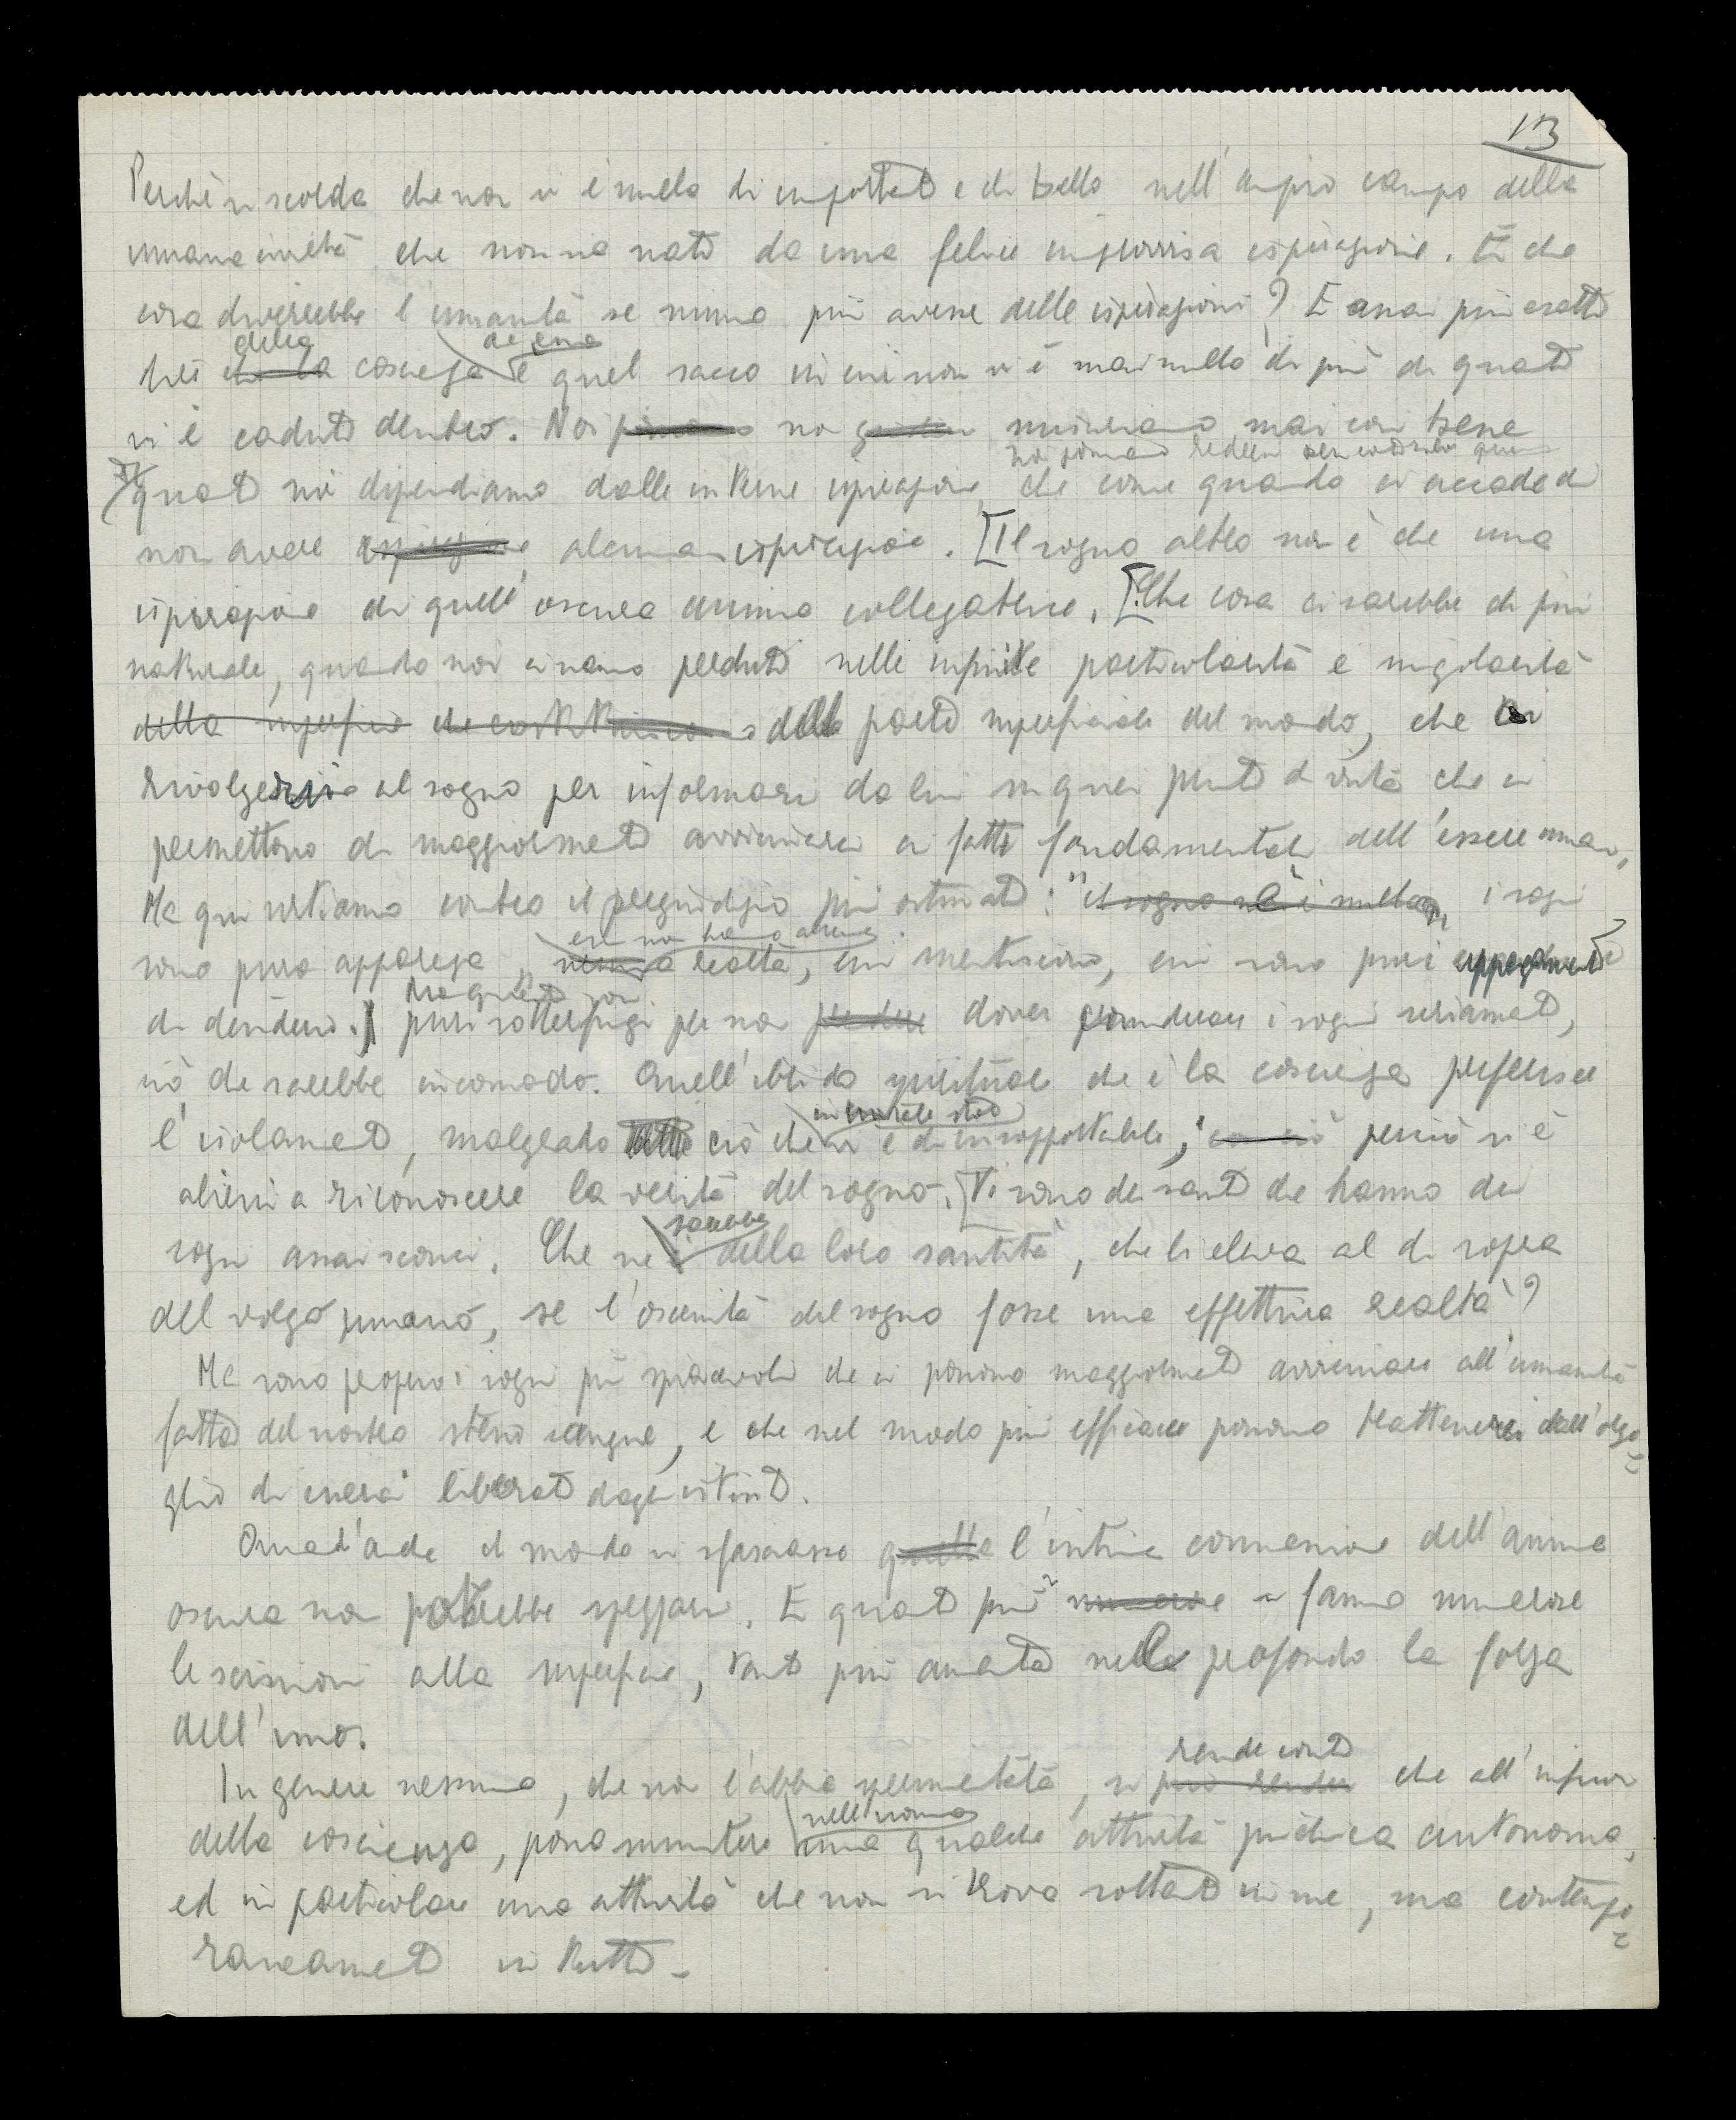 13
Perchè si scorda che non vi è nulla di importante e di bello nell'ampio campo della
umana civiltà che non sia nato da una felice improvvisa ispirazione. E che
cosa diverrebbe l'umanità se nessuno più avesse delle ispirazioni? E assai più esatto
della che essa
che la coscienza è quel sacco in cui non vi è mai nulla di più di quanto
vi è caduto dentro. Noi non misuriamo mai così bene
quanto noi dipendiamo dalle interne ispirazione, che come quando ci accade di
non avere alcuna ispirazione. [Il sogno altro non è che una
ispirazione di quell'oscura anima collegatrice. [Che cosa ci sarebbe di più
naturale, quando noi ci siamo perduti nelle infinite particolarità e singolarità
della superficie della parte superficiale del mondo, che
rivolgersi al sogno per informarci da lui su quei punti di vista che ci
permettono di maggiormente avvicinarci ai fatti fondamentali dell'essere umano,
Ma qui urtiamo contro il pregiudizio più ostinato: "il sogno è nulla", i sogni
essi non hanno alcuna
sono pura apparenza, nessuna realtà, essi mentiscono, essi sono puri appagamenti
Ma questi son
di desideri. puri sotterfugi per non dover prendere i sogni seriamente,
ciò che sarebbe incomodo. Quell'ibrido spirituale che è la coscienza preferisce
l'isolamento, malgrado tutto ciò che vi è di insopportabile; perciò si è
alieni a riconoscere la verità del sogno. [Vi sono dei santi che hanno dei
sarebbe
sogni assai sconci. Che ne è della loro santità, che li eleva al di sopra
del volgo umano, se l'oscenità del sogno fosse una effettiva realtà?
Ma sono proprio i sogni più spiacevoli che ci possono maggiormente avvicinare all'umanità
fatta del nostro stesso sangue, e che nel modo più efficace possono trattenerci dall'orgo=
glio di essersi liberati dagli istinti.
Quand'anche il mondo si sfasciasse l'intima connessione dell'anima
oscura non potrebbe spezzarsi. E quanto più si fanno numerose
le scissioni alla superficie, tanto più aumenta nel profondo la forza
dell'uno.
rende conto
In genere nessuno, che non l'abbia sperimentata, si può render che all'infuori
nell'uomo
della coscienza, possa sussistere una qualche attività psichica autonoma,
ed in particolare una attività che non si trova soltanto in me, ma contempo=
raneamente in tutti.